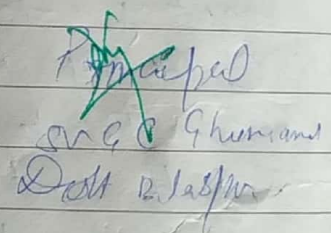 Principal
SVGC Ghumarwi
Distt Bilaspur